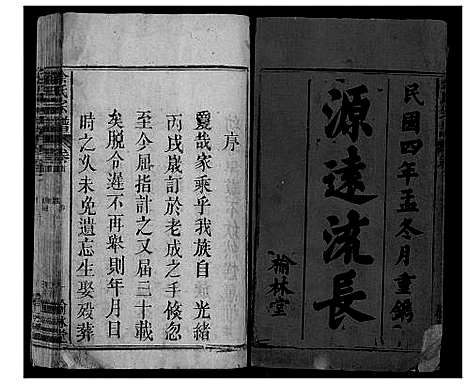 民國四年孟冬月重鐫
源遠流長
榆林堂
序
夏哉家乘乎我族自 光緒
丙戌歲訂於老成之手倏忽
至今屈指計之又届三十載
矣脱令遲不再舉則年月日
時之久未免遺忘生娶殁葬
氏宗譜
榆林堂